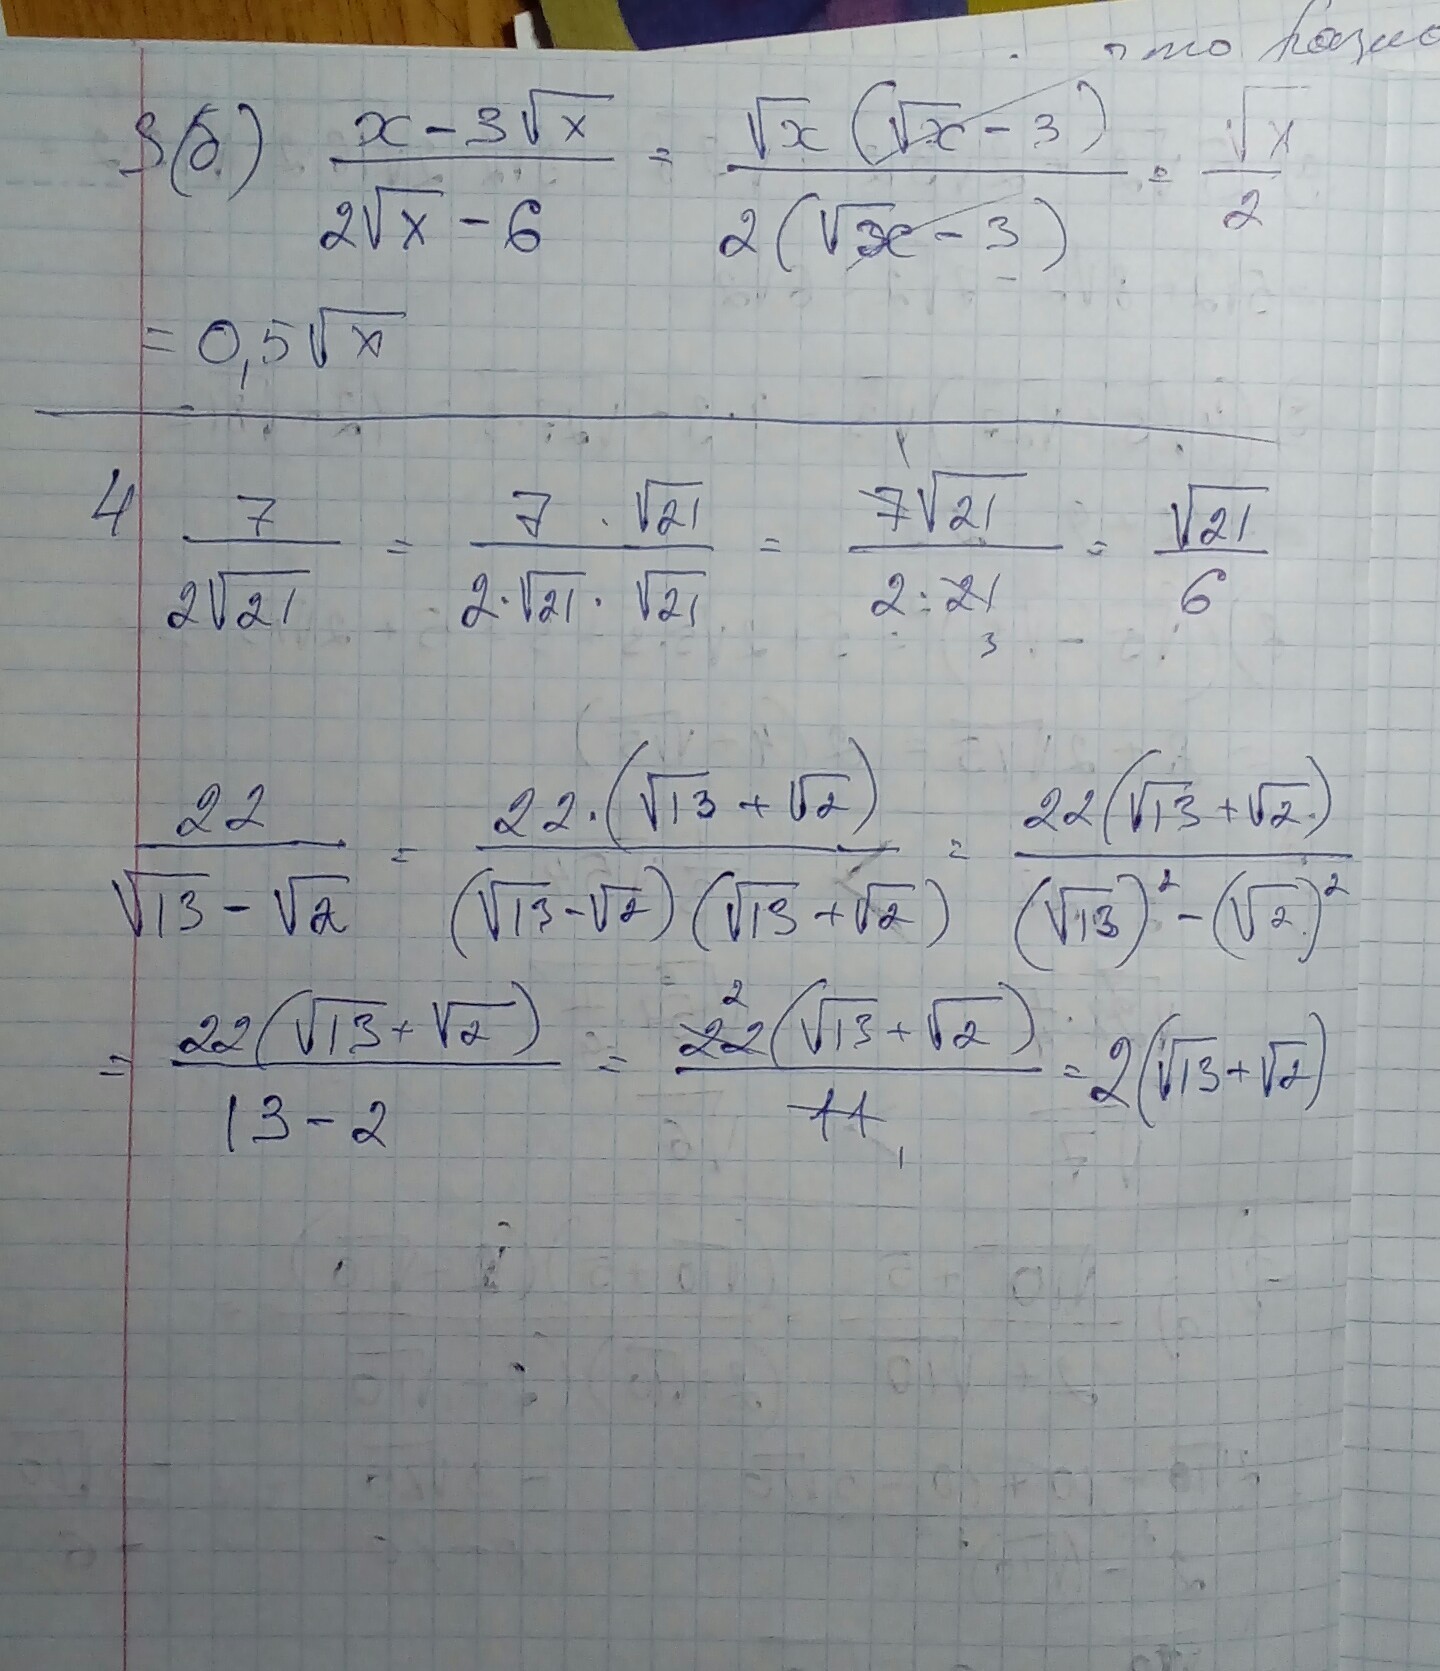 это
3(б) (x - 3√x)/(2√x - 6) = (√x(√x - 3))/(2(√x - 3)) = √x/2
= 0,5√x
4 7/(2√21) = (7 · √21)/(2·√21 · √21) = (7√21)/(2 · 21) = √21/6
1
3
22/(√13 - √2) = (22·(√13 + √2))/((√13 - √2)(√13 + √2)) = (22(√13 + √2))/((√13)² - (√2)²)
= (22(√13 + √2))/(13 - 2) = (22(√13 + √2))/11 = 2(√13 + √2)
2
1